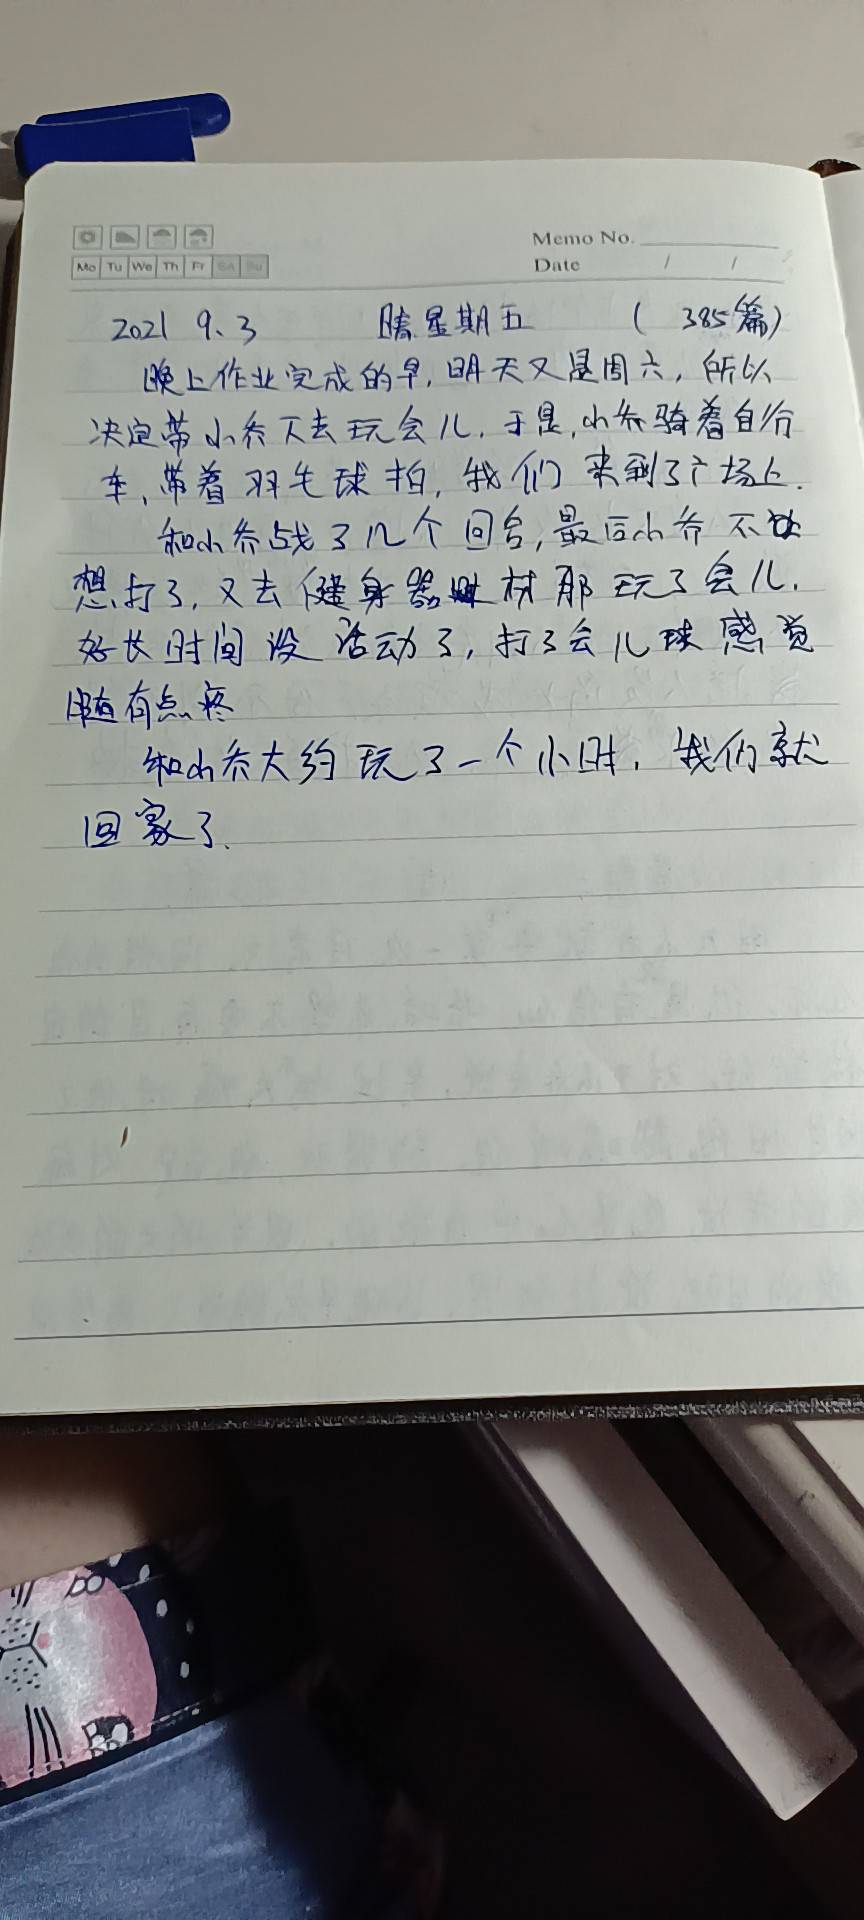 Memo No.
Mo Tu We Th Fr Sa Su
Date / /
2021 9、3 晴 星期五 ( 385篇)
晚上作业完成的早,明天又是周六,所以
决定带小乔下去玩会儿.于是,小乔骑着自行
车,带着羽毛球拍,我们来到了广场上.
和小乔战了几个回合,最后小乔不
想打了,又去健身器材那玩了会儿.
好长时间没活动了,打了会儿球感觉
有点疼
和小乔大约玩了一个小时,我们就
回家了.